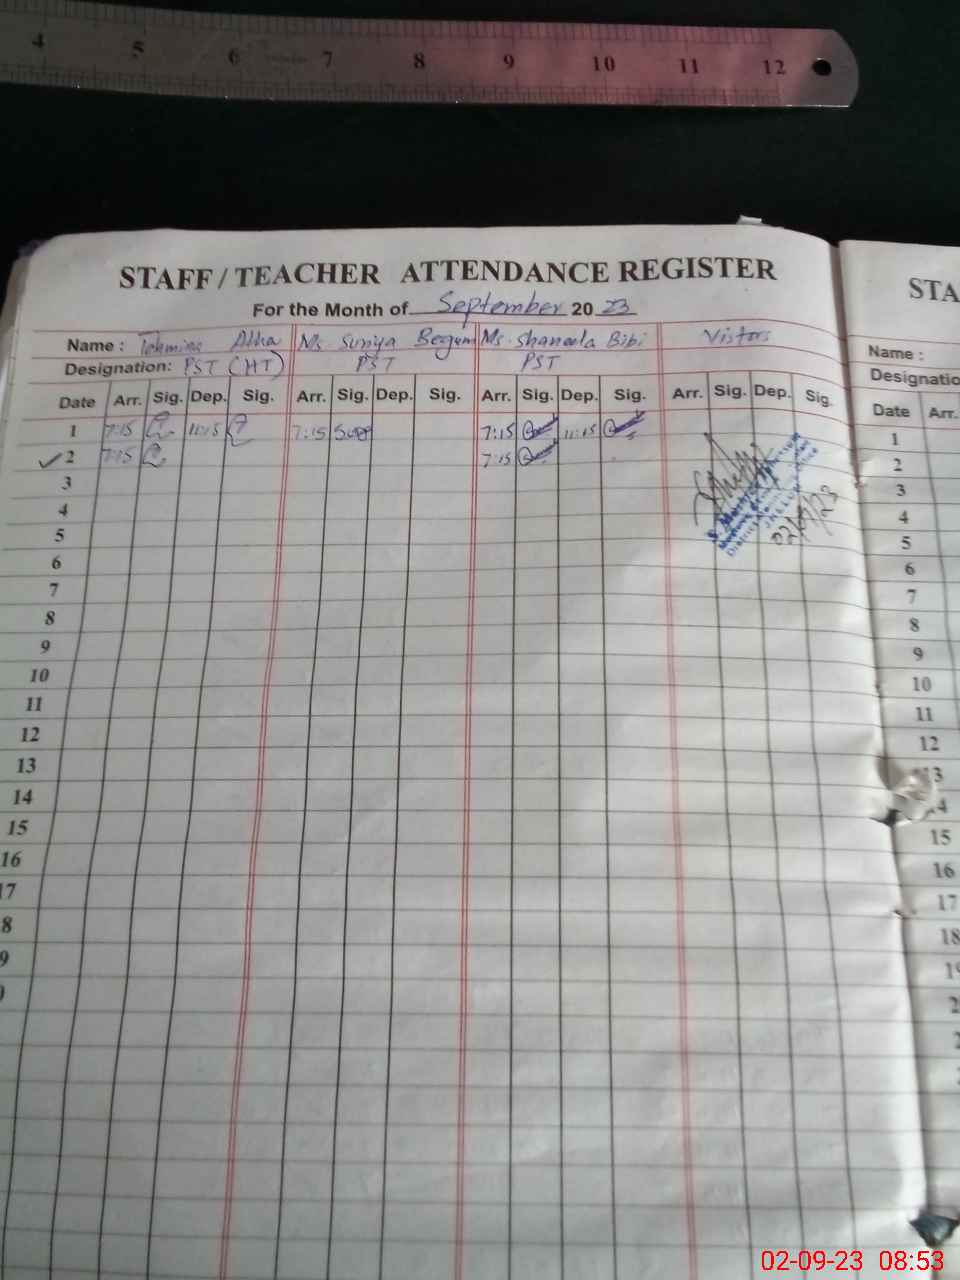 4 5 6 7 8 9 10 11 12
STAFF / TEACHER ATTENDANCE REGISTER
For the Month of September 2023
Name : Atha Ms. Suniya Begum Ms. Shaneela Bibi Vistors
Designation: PST (HT) PST PST
Date Arr. Sig. Dep. Sig. Arr. Sig. Dep. Sig. Arr. Sig. Dep. Sig. Arr. Sig. Dep. Sig.
1 7:15 11:15 7:15 7:15 11:15
2 7:15 7:15
3
4
5
6
7
8
9
10
11
12
13
14
15
16
17
8
9
02/09/23
STA
Name :
Designatio
Date Arr.
1
2
3
4
5
6
7
8
9
10
11
12
13
14
15
16
17
18
02-09-23 08:53